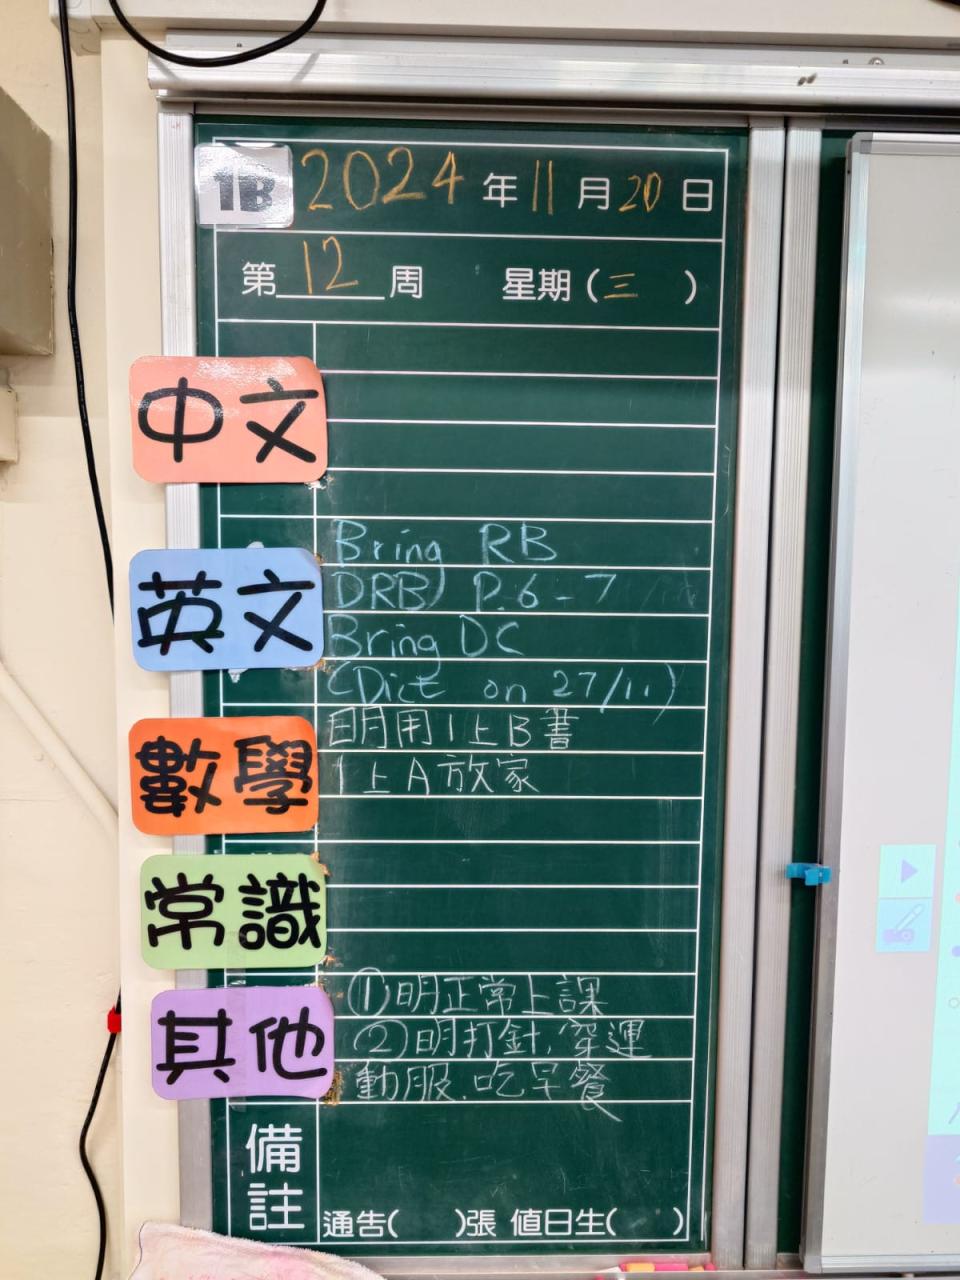 1B 2024年11月20日
第12周 星期(三 )
中文
英文
Bring RB
DRB P.6-7
Bring DC
(Dict on 27/11)
數學
明用1上B書
1上A放家
常識
其他
①明正常上課
②明打針,穿運
動服.吃早餐
備註
通告( )張 值日生( )